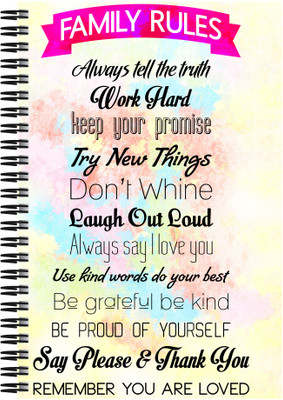 FAMILY RULES
Always tell the truth
Work Hard
keep your promise
Try New Things
Don't Whine
Laugh Out Loud
Always say I love you
Use kind words do your best
Be grateful be kind
BE PROUD OF YOURSELF
Say Please & Thank You
REMEMBER YOU ARE LOVED